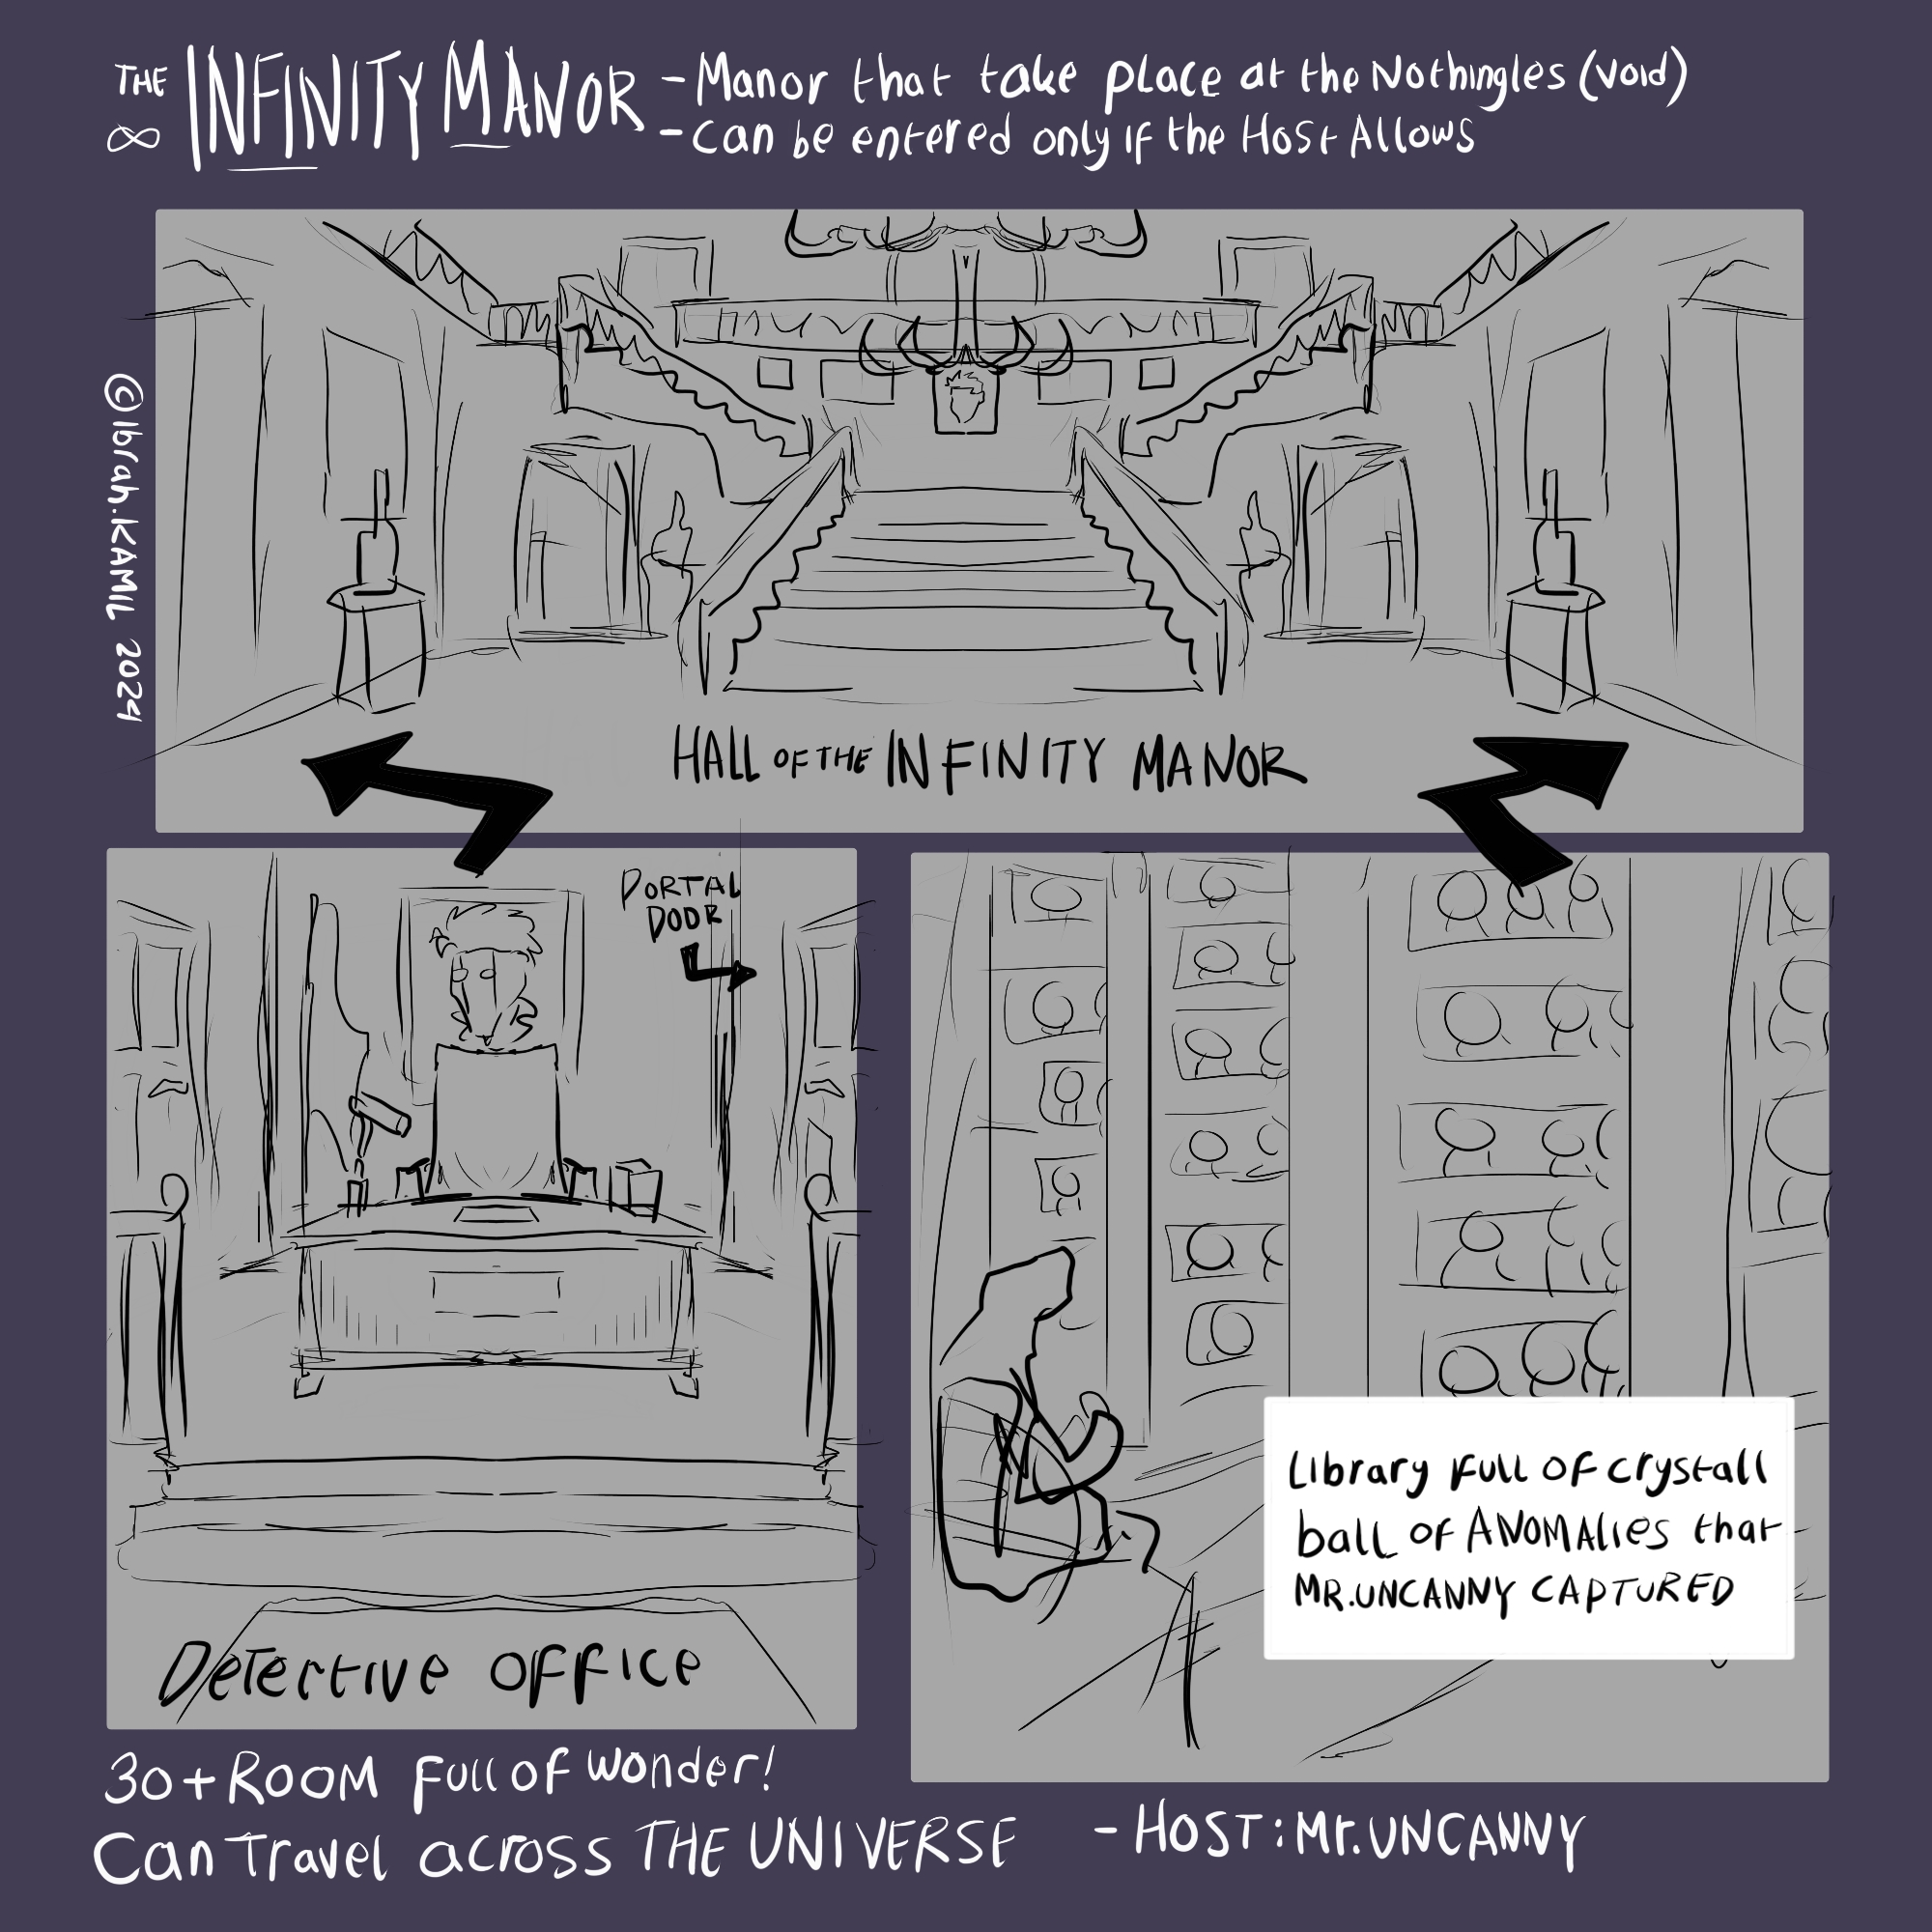 THE INFINITY MANOR - Manor that take place at the Nothingles (void)
∞ - can be entered only if the Host Allows
©Ibrah.KAMIL 2024
HALL OF THE INFINITY MANOR
PORTAL
DOOR
Detective office
Library full of crystall
ball of ANOMALIES that
MR.UNCANNY CAPTURED
30+ROOM full of wonder!
Can Travel across THE UNIVERSE
- HOST : Mr.UNCANNY